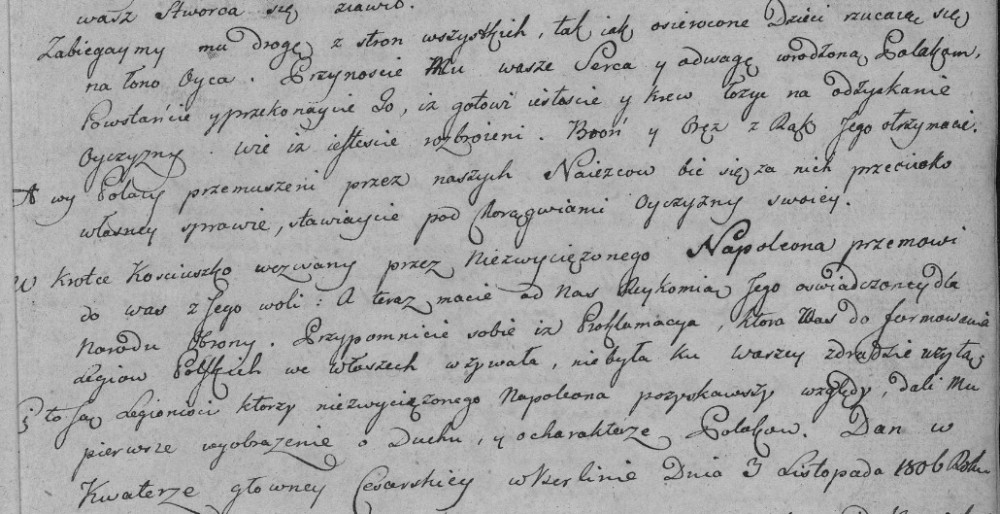 wasz Stworca się ziawił.
Zabiegaymy mu drogę z stron wszystkich, tak iak osierocone Dzieci rzucaią się
na łono Oyca. Przynoscie Mu wasze Serca y odwagę wrodzoną Polakom,
Powstańcie y przekonaycie Go, iż gotowi iesteście y krew łozyc na odzyskanie
Oyczyzny. Wie iż iesteście rozbroieni. Broń y Oręż z Rąk Jego otrzymacie.
A wy Polacy przemuszeni przez naszych Naiezcow bić się za nich przeciwko
własney sprawie, stawiaycie pod Chorągwiami Oyczyzny swoiey.
W krotce Kosciuszko wezwany przez Niezwyciężonego Napoleona przemowi
do was z Jego woli: A teraz macie od Nas Rękomią Jego oswiadczoney dla
Narodu Obrony. Przypomnicie sobie iż Proklamacya, ktora Was do formowania
Legiow Polskich we Włoszech wzywała, niebyła ku waszey zdradzie użytą;
to są Legionisci ktorzy niezwyciężonego Napoleona pozyskawszy względy, dali Mu
pierwsze wyobrażenie o Duchu, y o charakterze Polakow. Dan w
Kwaterze głowney Cesarskiey w Berlinie Dnia 3 Listopada 1806 Roku